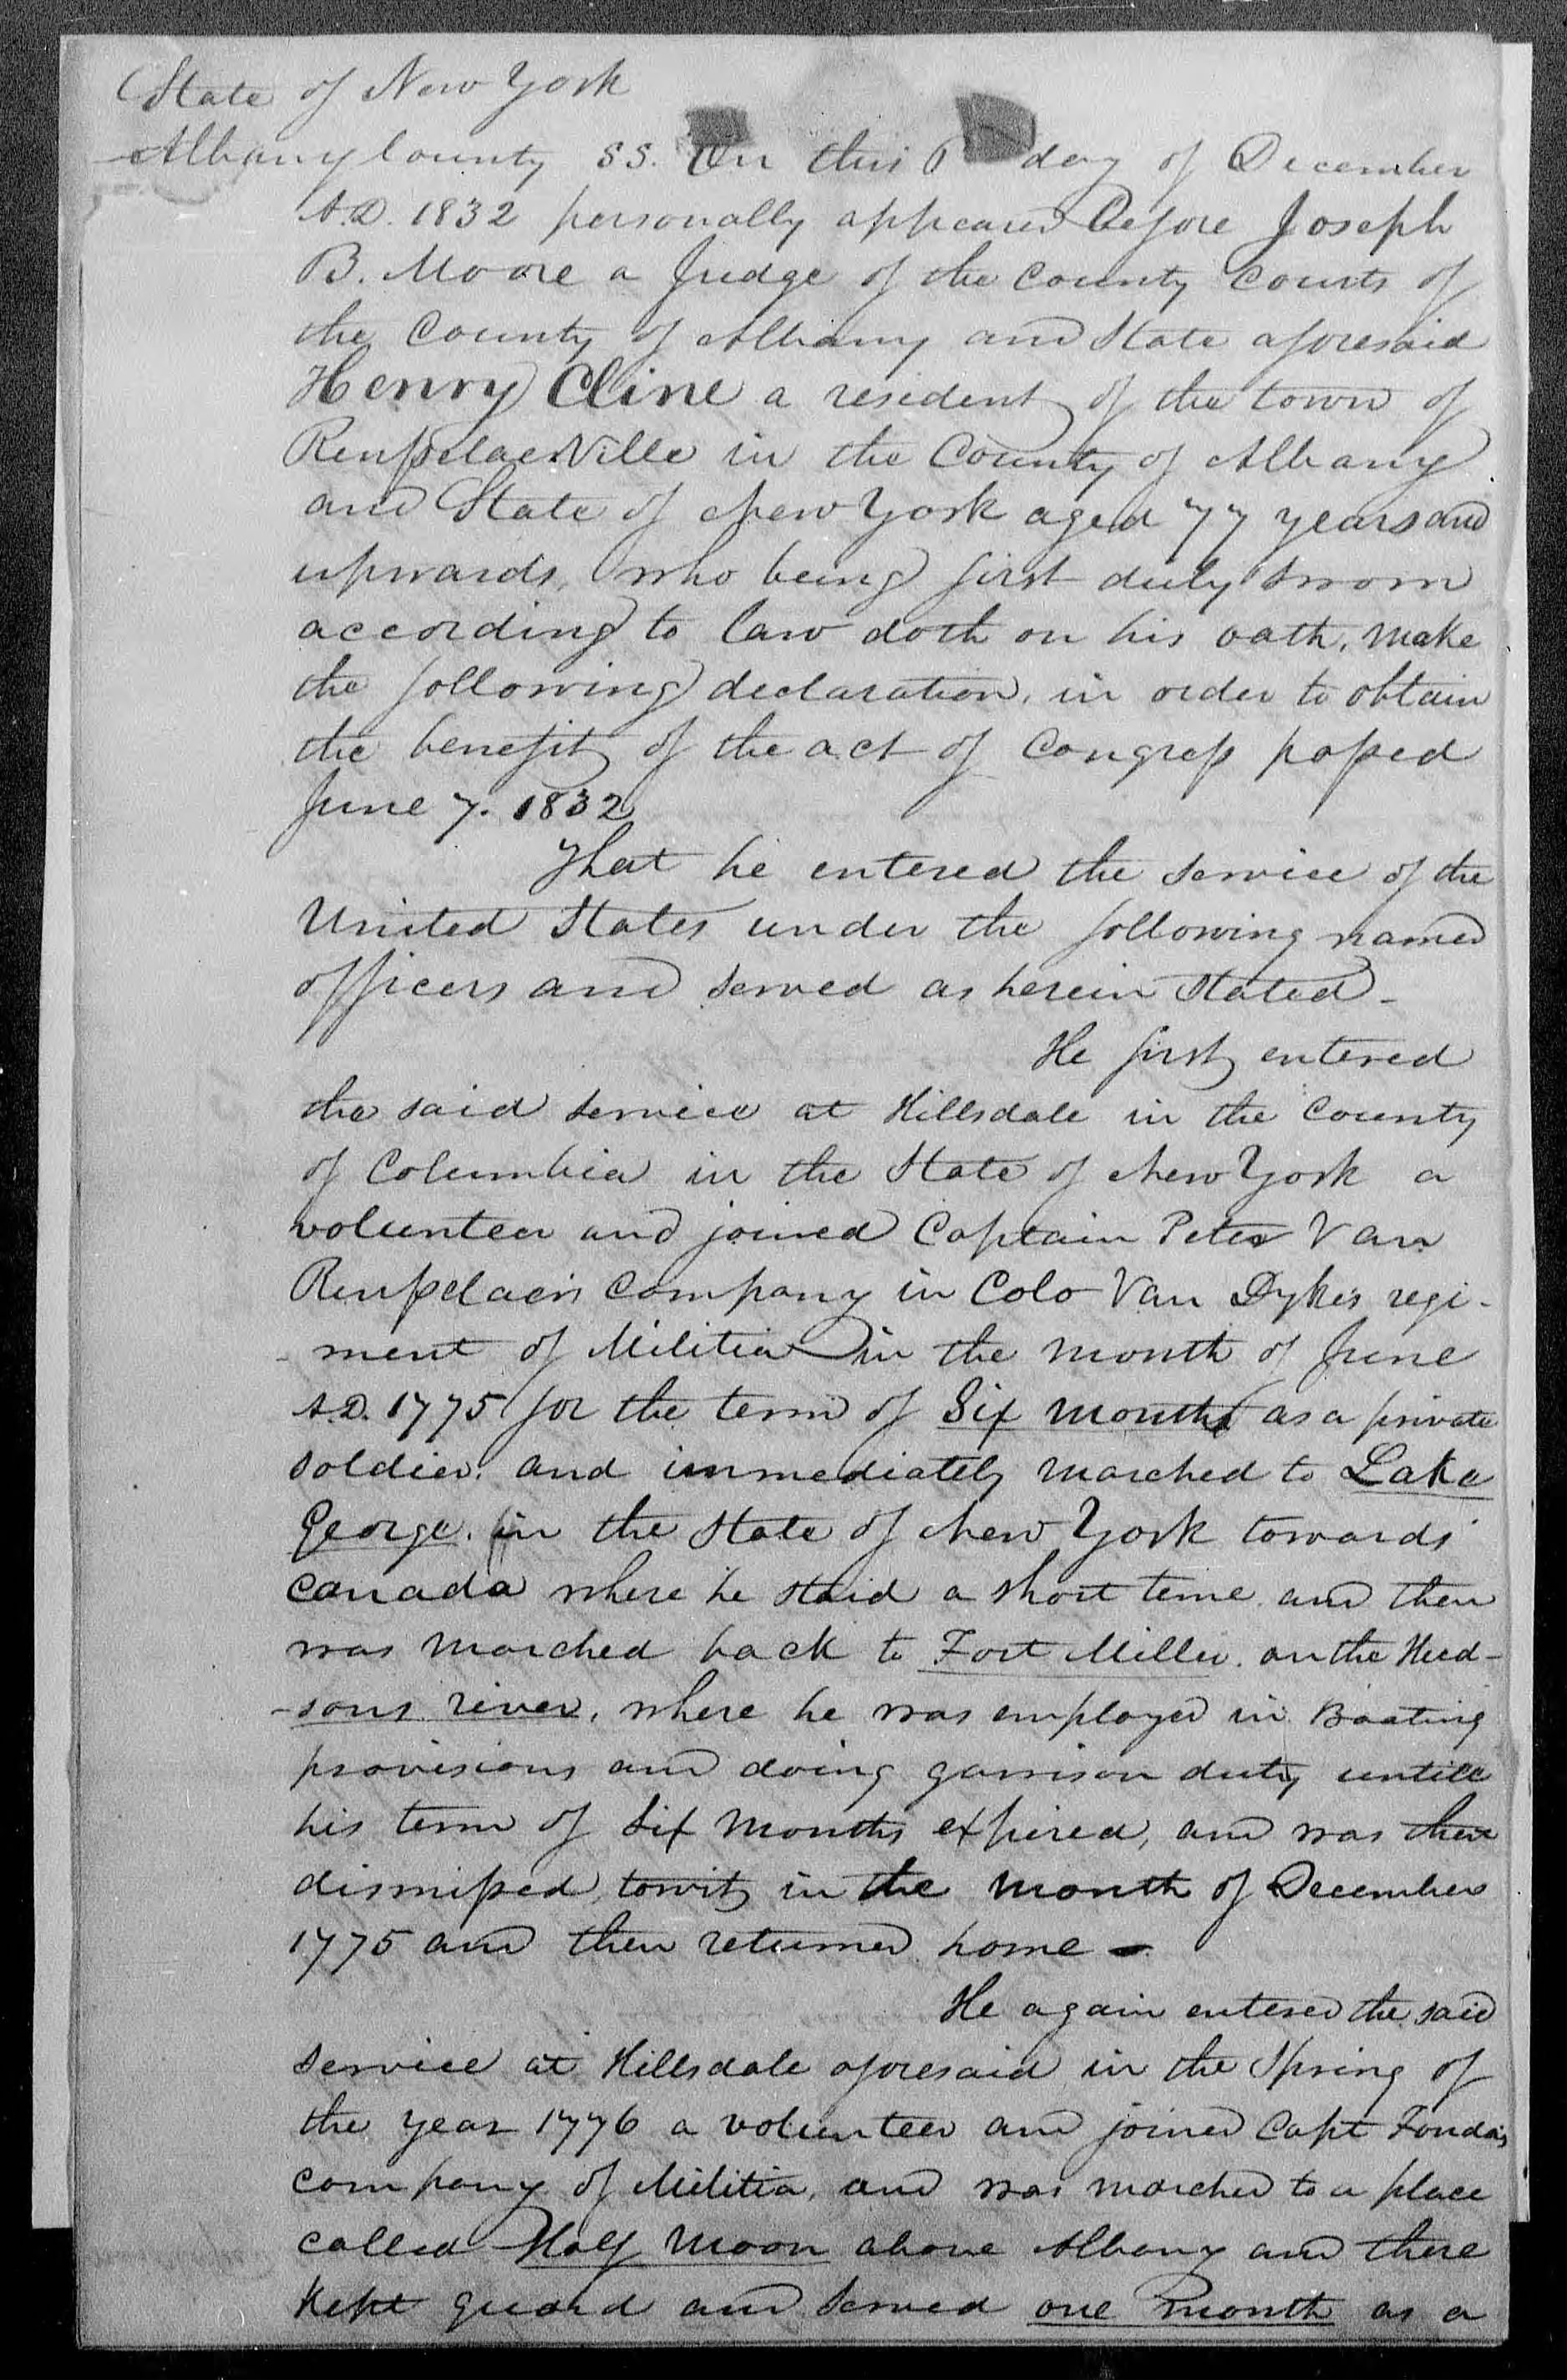 State of New York
Albany County SS. On this 6 day of December
A.D. 1832 personally appeared Before Joseph
B. Moore a Judge of the County Courts of
the County of Albany and State aforesaid
Henry Cline a resident of the town of
RensselaerVille in the County of Albany
and State of New York aged 77 years and
upwards, who being first duly sworn
according to law doth on his oath, make
the following declaration, in order to obtain
the benefit of the act of Congress passed
June 7. 1832
That he entered the service of the
United States under the following named
officers and served as herein Stated -
He first entered
the said service at Hillsdale in the County
of Columbia in the State of New York a
volunteer and joined Captain Peter Van
Rensselaer's Company in Colo Van Dyke's regi-
- ment of Militia in the month of June
A.D. 1775 for the term of Six months as a private
soldier, and immediately marched to Lake
George. in the State of New York towards
Canada where he staid a short time and then
was marched back to Fort Miller. on the Hud-
-sons river, where he was employed in Boating
provisions and doing garrison duty untill
his term of Six months expired, and was then
dismissed, towit, in the month of December
1775 and then returned home -
He again entered the said
service at Hillsdale aforesaid in the Spring of
the year 1776 a volunteer and joined Capt Fonda's
company of Militia, and was marched to a place
called Half Moon above Albany and there
kept guard and served one month as a